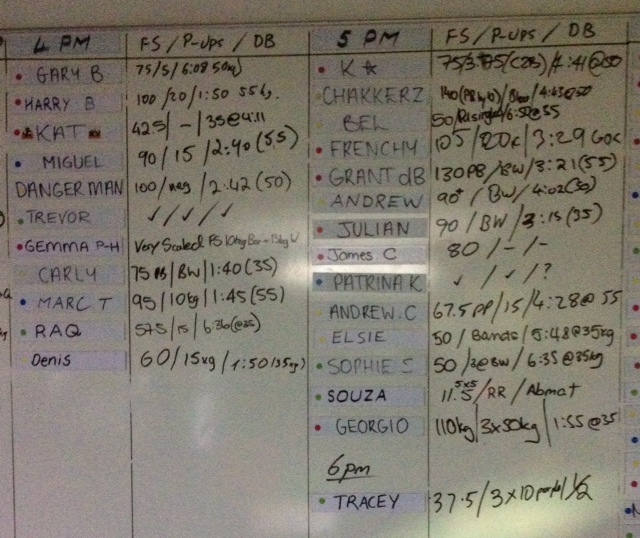 4 PM FS / P-UPS / DB
GARY B 75/5/6:08 50kg
HARRY B 100/20/1:50 55kg
KAT 42.5/-/35@4:11
MIGUEL 90/15/2:40 (55)
DANGERMAN 100/neg/2:42 (50)
TREVOR ✓/✓/✓
GEMMA P-H Very Scaled FS 10kg Bar
CARLY 75 PB/BW/1:40 (35)
MARC T 95/10kg/1:45 (55)
RAQ 57.5/15/6:36(@35)
Denis 60/15kg/1:50 (35kg)
5 PM FS / P-UPS / DB
K ☆ (C2B)/4:41@50
CHAKKERZ 4:43@50
BEL 50/Rising/6:50@55
FRENCHY 105/20c/3:29
GRANT dB 130PB/BW/3:21 (55)
ANDREW 90+/BW/4:02
JULIAN 90/BW/3:15 (35)
James C 80/-/-
PATRINA K ✓/✓/?
ANDREW.C 67.5 PP/15/4:28@55
ELSIE 50/Bands/5:48@35kg
SOPHIE S 50/3@BW/6:35@35kg
SOUZA 11.5 5x5/RR/Abmat
GEORGIO 110kg/3x30kg/1:55@35
6pm
TRACEY 37.5/3x10 /½